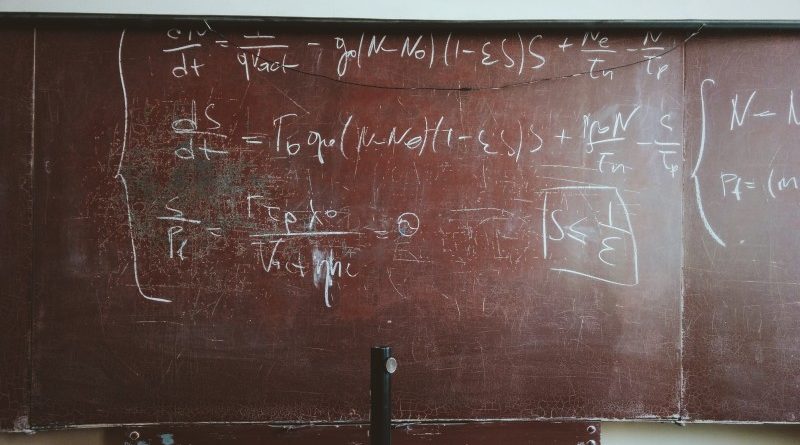 dN/dt = I/qVact - g₀(N-N₀)(1-εS)S + Ne/τn - N/τp
dS/dt = Γ₀g₀(N-N₀)(1-εS)S + N/τn - S/τp
S/Pf = Γτpλ₀/Vact ηhc = ②
S ≤ 1/ε
N - N
Pf = (m